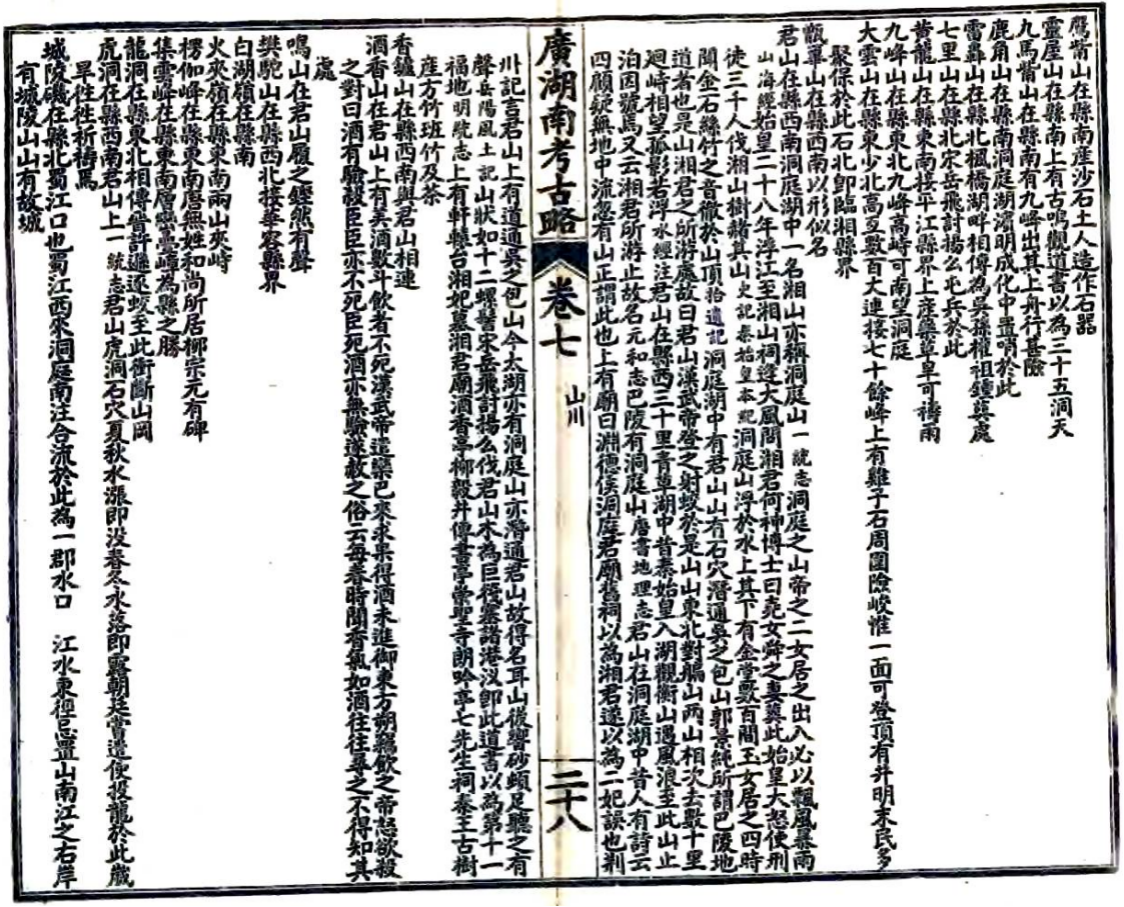 鴈嘴山在縣南產沙石土人造作石器
靈屋山在縣南上有古鳴觀道書以為三十五洞天
九馬嘴山在縣南有九峰出其上舟行甚險
鹿角山在縣南洞庭湖濱明成化中置哨於此
雷轟山在縣北楓橋湖畔相傳為吳孫權祖鍾葬處
七里山在縣北宋岳飛討楊么屯兵於此
黃龍山在縣東南接平江縣界上產藥草旱可禱雨
九峰山在縣東北九峰高峙可南望洞庭
大雲山在縣東少北高亙數百丈連接七十餘峰上有雞子石周圍險峻惟一面可登頂有井明末民多
聚保於此石北卽臨湘縣界
甑箄山在縣西南以形似名
君山在縣西南洞庭湖中一名湘山亦稱洞庭山一統志洞庭之山帝之二女居之出入必以飄風暴雨
山海經始皇二十八年浮江至湘山祠逢大風問湘君何神博士曰堯女舜之妻葬此始皇大怒使刑
徒三千人伐湘山樹赭其山史記秦始皇本紀洞庭山浮於水上其下有金堂數百間玉女居之四時
聞金石絲竹之音徹於山頂拾遺記洞庭湖中有君山山有石穴潛通吳之包山郭景純所謂巴陵地
道者也是山湘君之所游處故曰君山漢武帝登之射蛟於是山山東北對艑山兩山相次去數十里
迴峙相望孤影若浮水經注君山在縣西三十里青草湖中昔秦始皇入湖觀衡山遇風浪至此山止
泊因號焉又云湘君所游止故名元和志巴陵有洞庭山唐書地理志君山在洞庭湖中昔人有詩云
四顧疑無地中流忽有山正謂此也上有廟曰淵德侯洞庭君廟舊祠以為湘君遂以為二妃誤也荆
廣湖南考古略
卷七
山川
二十八
州記言君山上有道通吳之包山今太湖亦有洞庭山亦潛通君山故得名耳山後響砂頓足聽之有
聲岳陽風土記山狀如十二螺髻宋岳飛討楊么伐君山木為巨筏塞諸港汊卽此道書以為第十一
福地明統志上有軒轅台湘妃墓湘君廟酒香亭柳毅井傳書亭崇聖寺朗吟亭七先生祠秦王古樹
產方竹班竹及茶
香鑪山在縣西南與君山相連
酒香山在君山上有美酒數斗飲者不死漢武帝遣欒巴來求果得酒未進御東方朔竊飲之帝怒欲殺
之對曰酒有驗殺臣臣亦不死臣死酒亦無驗遂赦之俗云每春時聞香氣如酒往往尋之不得知其
處
鳴山在君山履之鏗然有聲
樊駝山在縣西北接華容縣界
白湖嶺在縣南
火夾嶺在縣東南兩山夾峙
楞伽峰在縣東南唐無姓和尚所居柳宗元有碑
集雲峰在縣東南層巒疊嶂為縣之勝
龍洞在縣東北相傳嘗許遜逐蛟至此衝斷山岡
虎洞在縣西南君山上一統志君山虎洞石穴夏秋水漲卽没春冬水落卽露朝廷嘗遣使投龍於此歲
旱往往祈禱焉
城陵磯在縣北蜀江口也蜀江西來洞庭南注合流於此為一郡水口　江水東徑忌置山南江之右岸
有城陵山山有故城